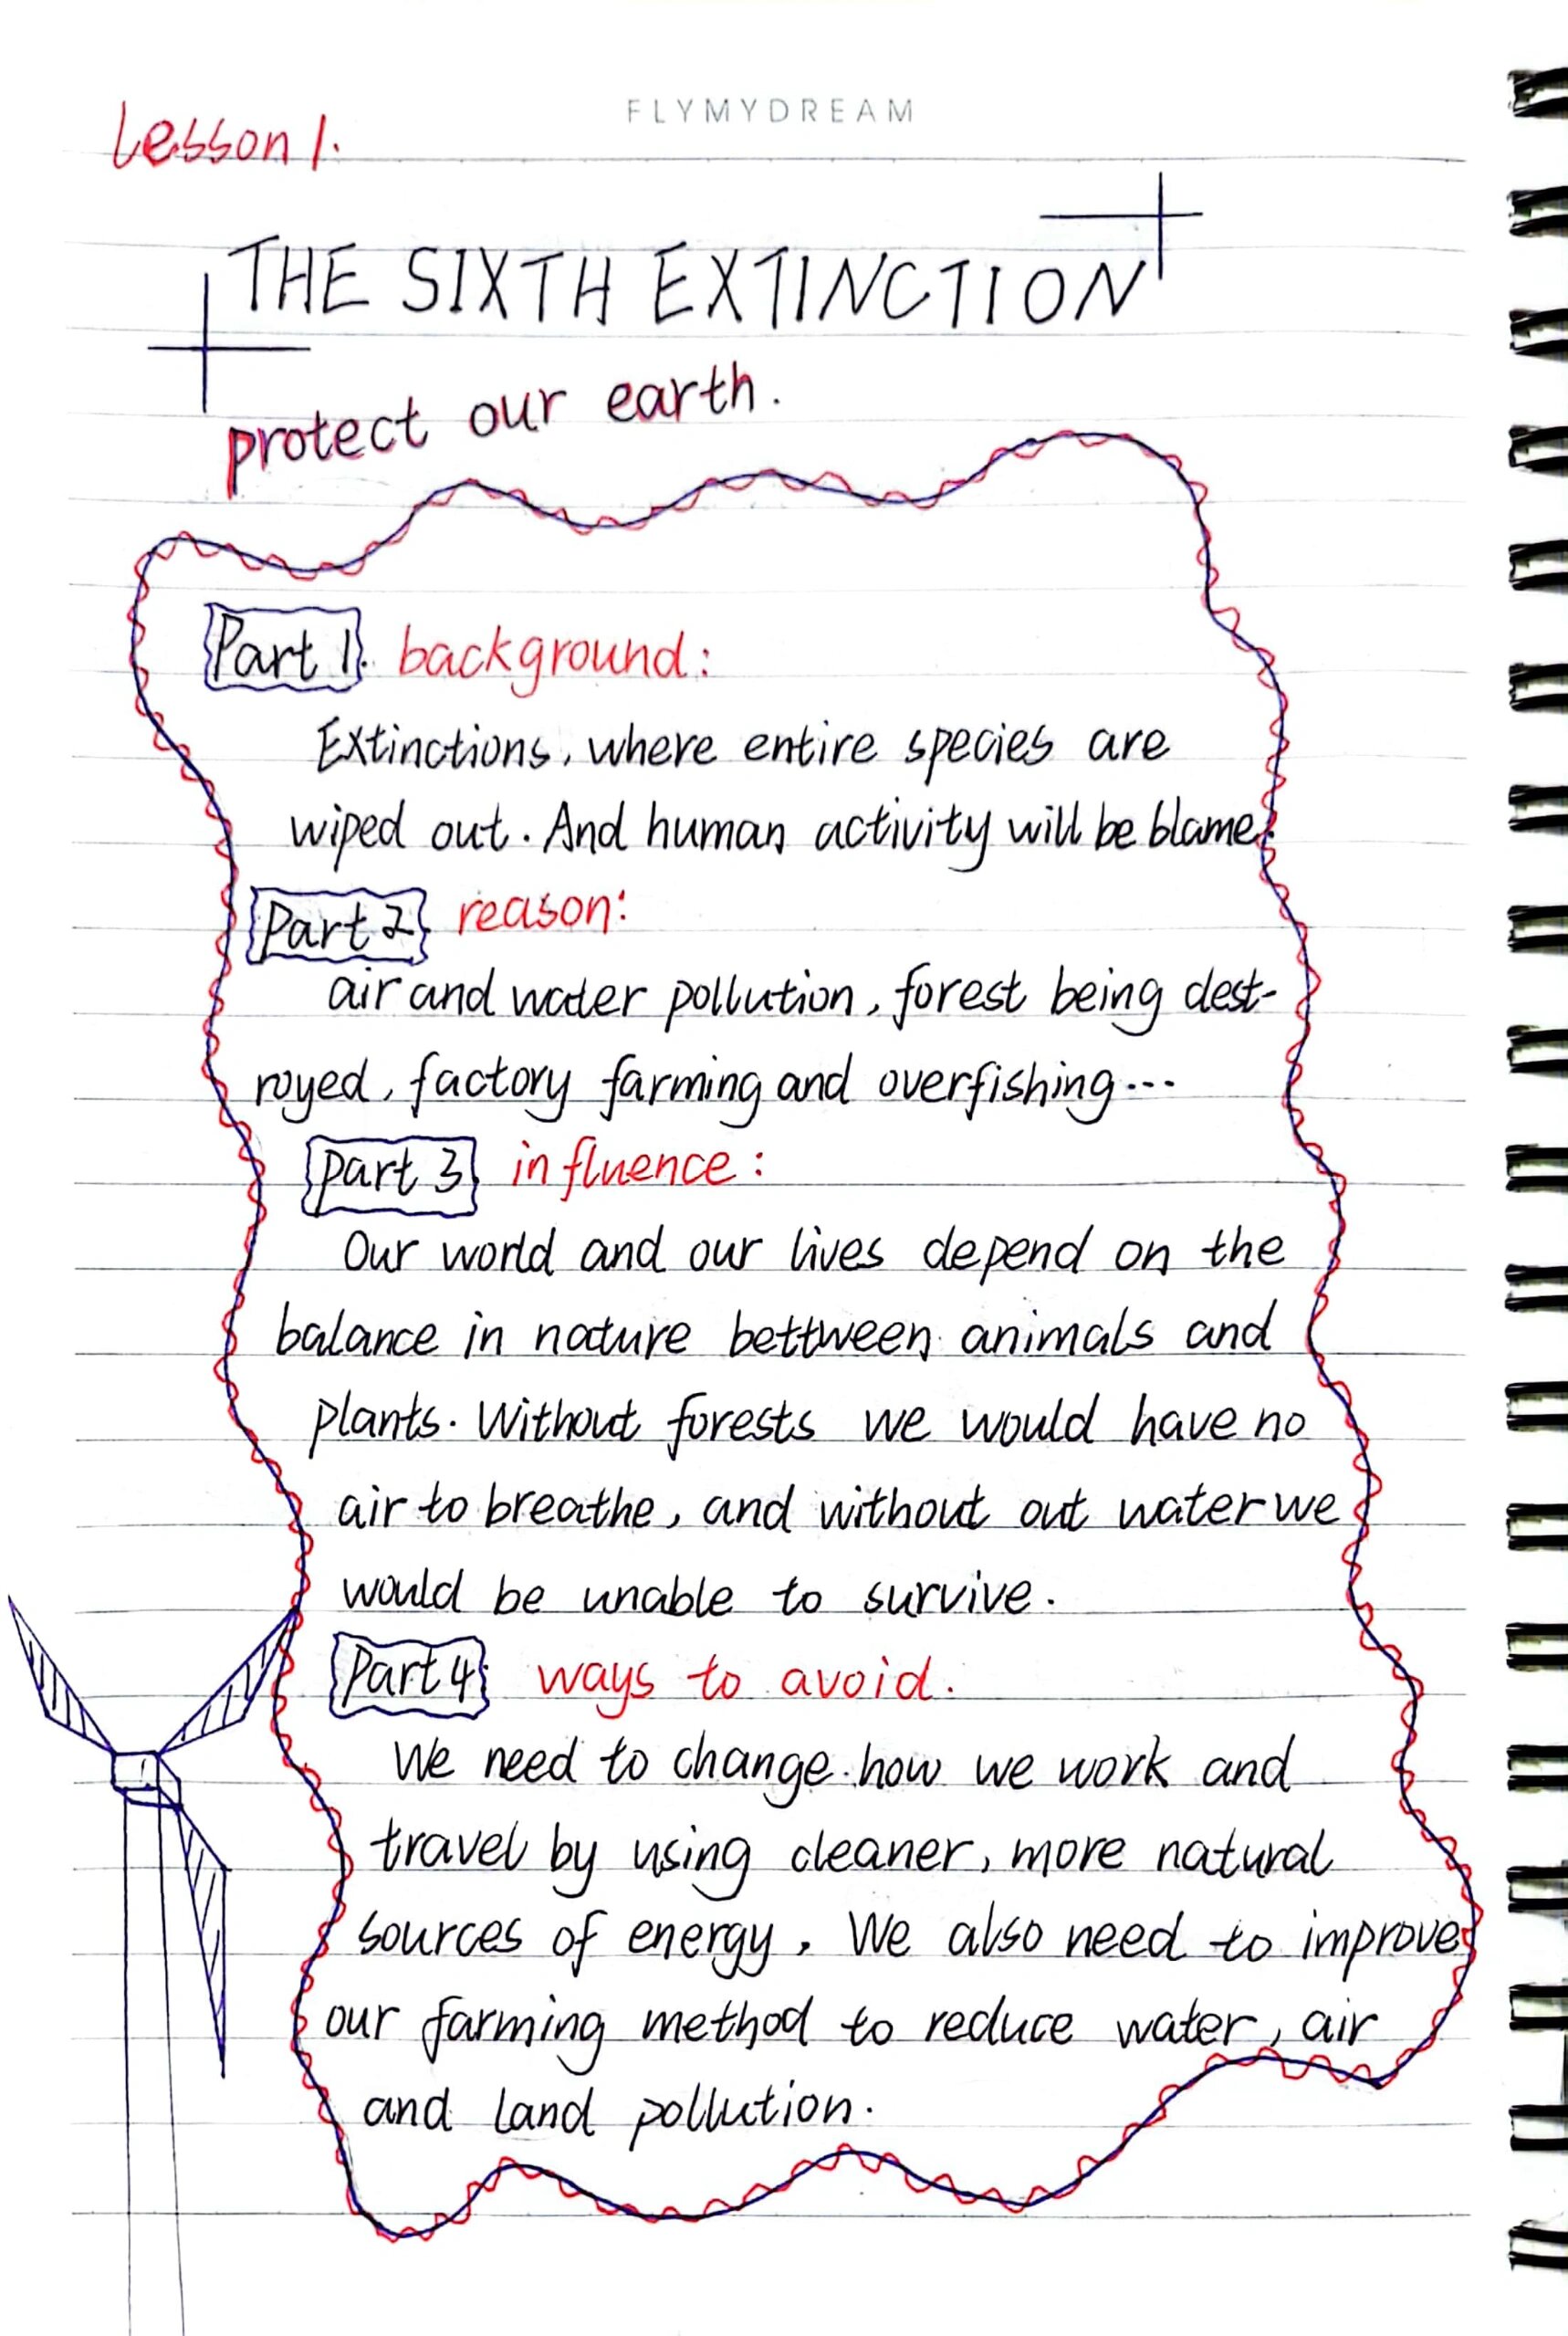 FLYMYDREAM
Lesson 1.
THE SIXTH EXTINCTION
protect our earth.
Part 1. background:
Extinctions, where entire species are
wiped out. And human activity will be blame.
Part 2 reason:
air and water pollution, forest being dest-
royed, factory farming and overfishing...
part 3 influence:
Our world and our lives depend on the
balance in nature bettween animals and
plants. Without forests we would have no
air to breathe, and without out water we
would be unable to survive.
Part 4: ways to avoid.
We need to change how we work and
travel by using cleaner, more natural
sources of energy. We also need to improve
our farming method to reduce water, air
and land pollution.